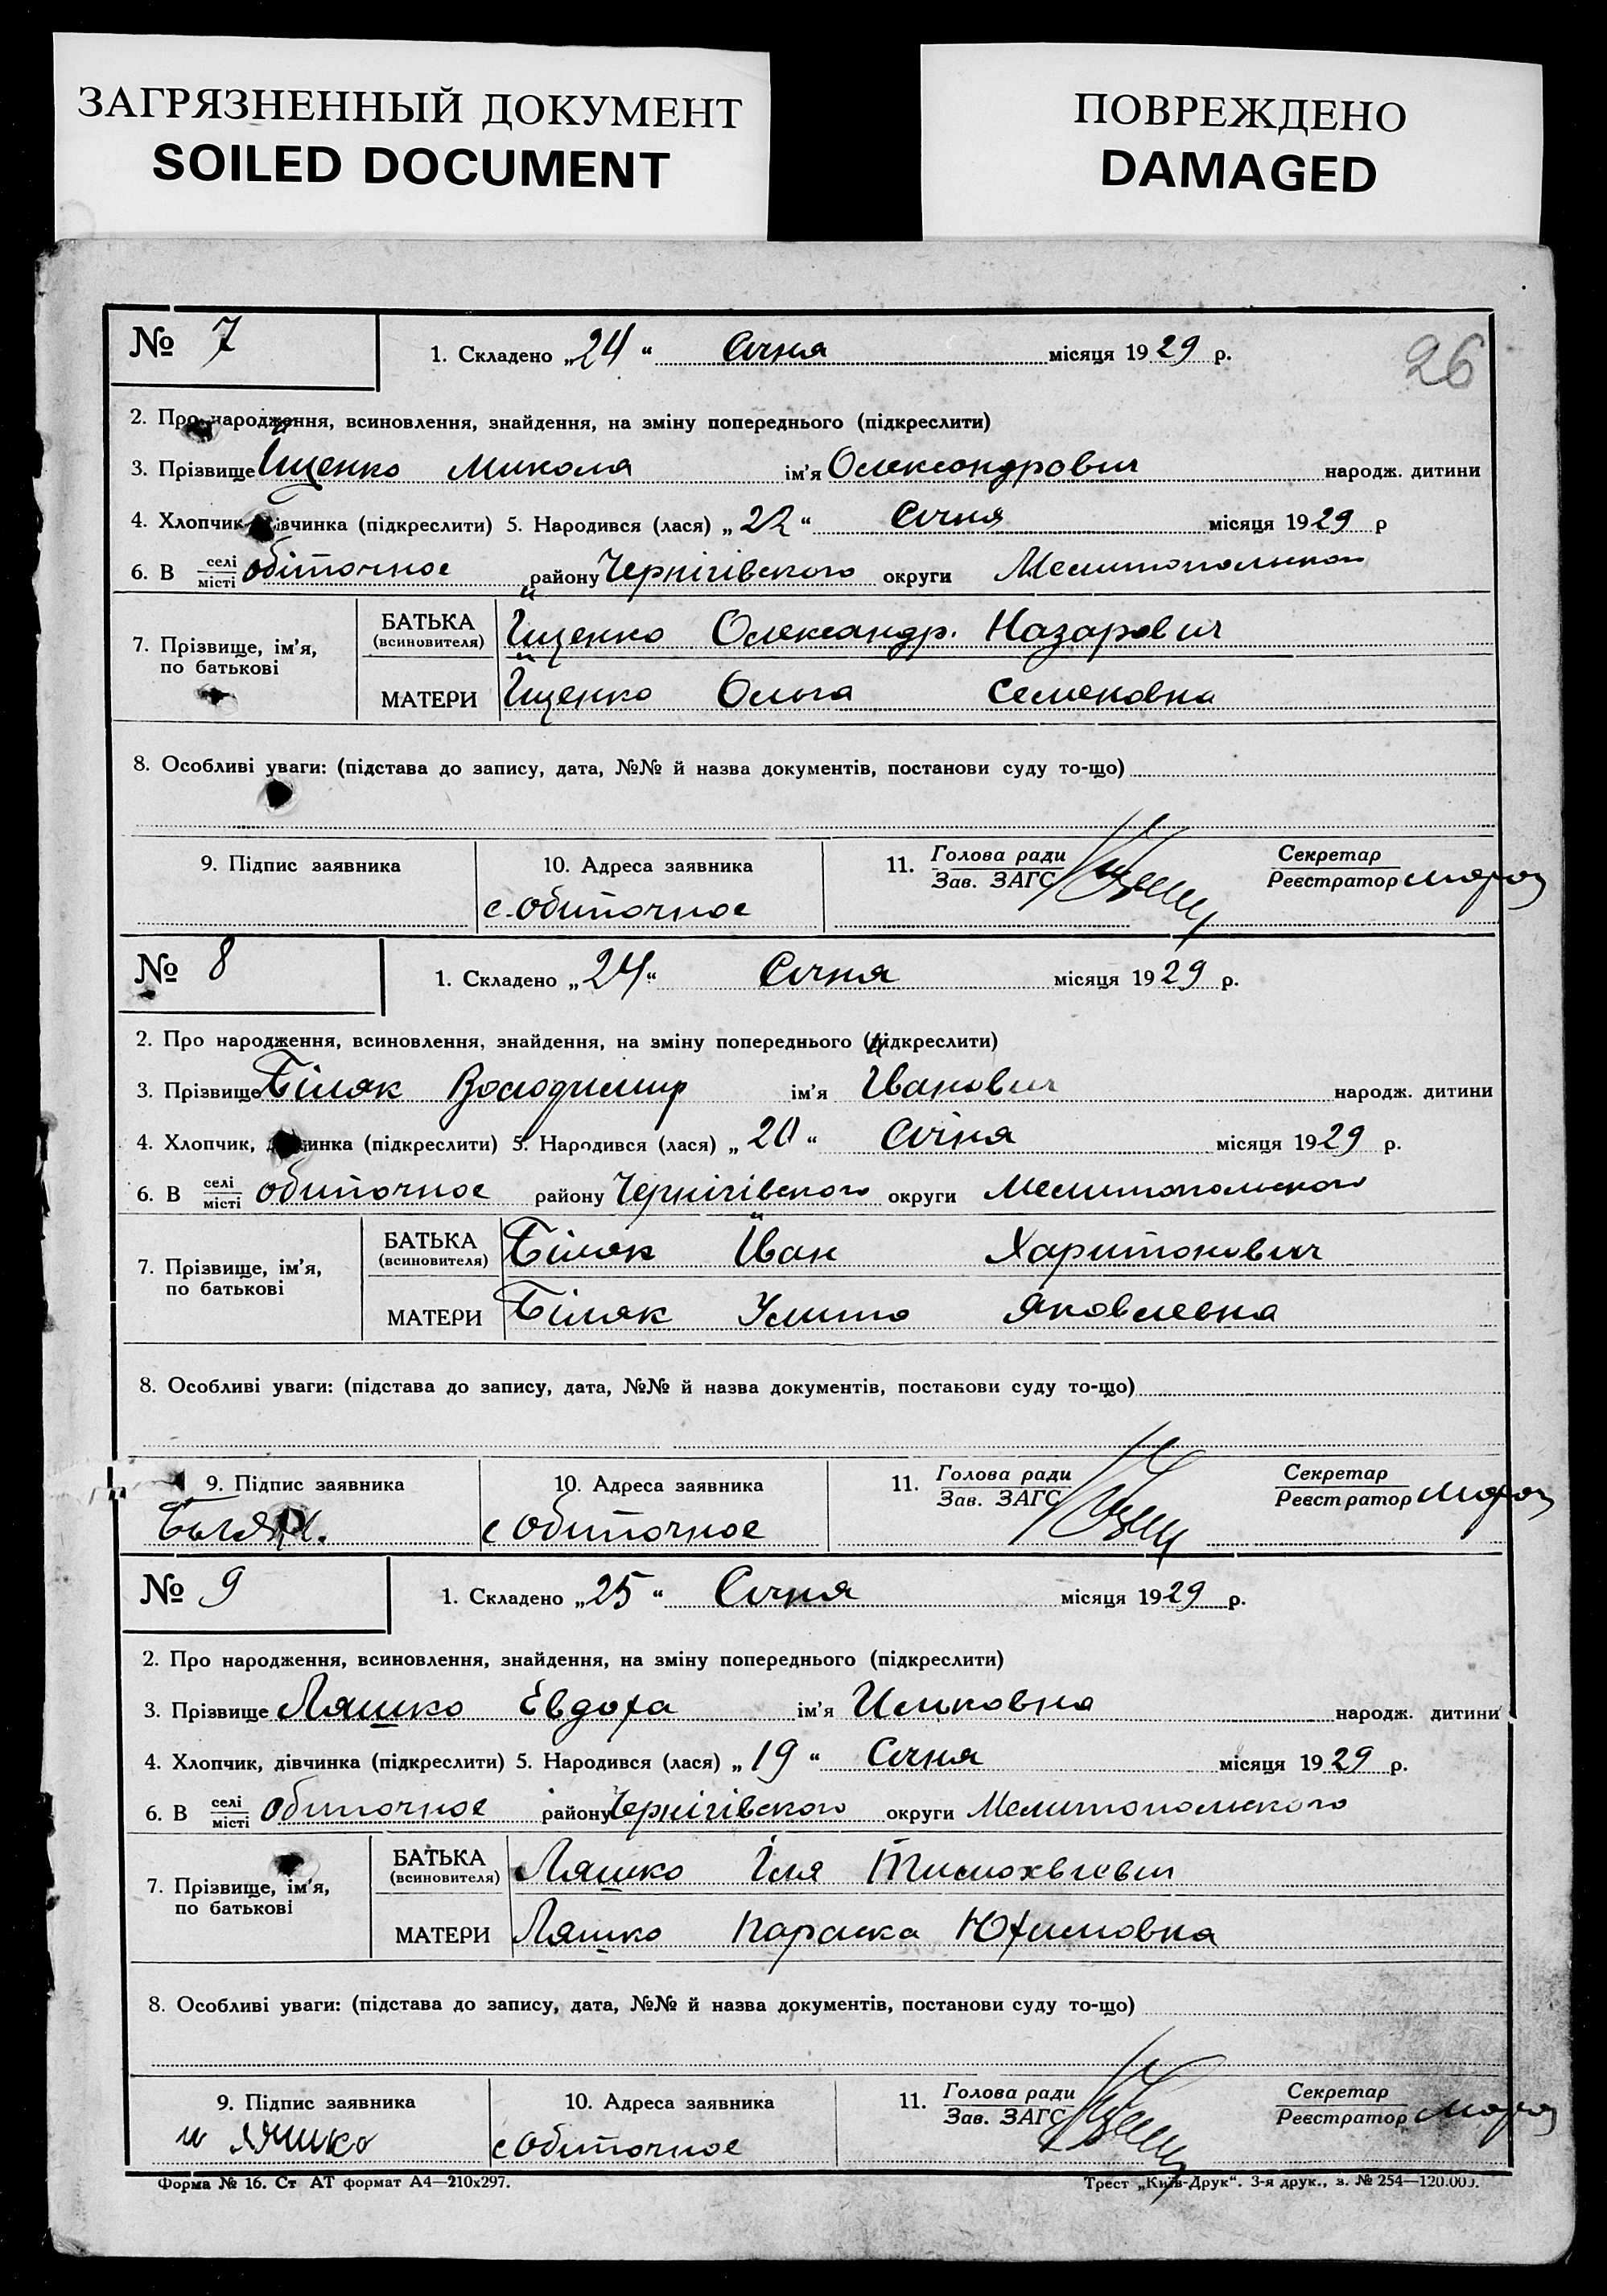 ЗАГРЯЗНЕННЫЙ ДОКУМЕНТ
SOILED DOCUMENT
ПОВРЕЖДЕНО
DAMAGED
№ 7
1. Складено „24“ Січня місяця 1929 р.
26
2. Про народження, всиновлення, знайдення, на зміну попереднього (підкреслити)
3. Прізвище Ищенко Микола ім'я Олександрович народж. дитини
4. Хлопчик, дівчинка (підкреслити) 5. Народився (лася) „22“ Січня місяця 1929 р
6. В селі/місті Обіточное району Чернігівского округи
7. Прізвище, ім'я, по батькові
БАТЬКА (всиновителя) Ищенко Олександр. Назарович
МАТЕРИ Ищенко Ольга Семеновна
8. Особливі уваги: (підстава до запису, дата, №№ й назва документів, постанови суду то-що)
9. Підпис заявника
10. Адреса заявника
11. Голова ради/Зав. ЗАГС
Секретар/Реєстратор Мороз
с. Обиточное
№ 8
1. Складено „24“ Січня місяця 1929 р.
2. Про народження, всиновлення, знайдення, на зміну попереднього (підкреслити)
3. Прізвище Біляк Володимир ім'я Іванович народж. дитини
4. Хлопчик, дівчинка (підкреслити) 5. Народився (лася) „20“ Січня місяця 1929 р.
6. В селі/місті Обиточное району Чернігівского округи Мелитопольского
7. Прізвище, ім'я, по батькові
БАТЬКА (всиновителя) Біляк Йван Харитонович
МАТЕРИ Біляк Улита Яковлевна
8. Особливі уваги: (підстава до запису, дата, №№ й назва документів, постанови суду то-що)
9. Підпис заявника
10. Адреса заявника
11. Голова ради/Зав. ЗАГС
Секретар/Реєстратор Мороз
с Обиточное
№ 9
1. Складено „25“ Січня місяця 1929 р.
2. Про народження, всиновлення, знайдення, на зміну попереднього (підкреслити)
3. Прізвище Ляшко Евдоха ім'я Ильковна народж. дитини
4. Хлопчик, дівчинка (підкреслити) 5. Народився (лася) „19“ Січня місяця 1929 р.
6. В селі/місті Обиточное району Чернігівского округи Мелитопольского
7. Прізвище, ім'я, по батькові
БАТЬКА (всиновителя) Ляшко Іля Тимохвієвич
МАТЕРИ Ляшко Параска Юхимовна
8. Особливі уваги: (підстава до запису, дата, №№ й назва документів, постанови суду то-що)
9. Підпис заявника
10. Адреса заявника
11. Голова ради/Зав. ЗАГС
Секретар/Реєстратор Мороз
и Ляшко
с Обиточное
Форма № 16. Ст АТ формат А4—210х297.
Трест „Київ-Друк“. 3-я друк., з. № 254—120.000.